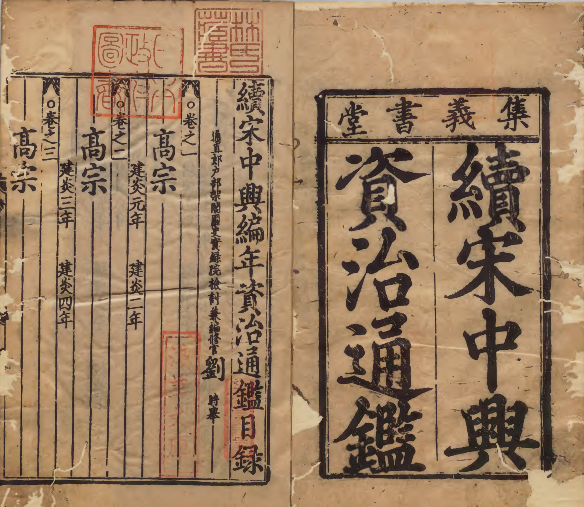 集義書堂
續宋中興
資治通鑑
續宋中興編年資治通鑑目錄
通直郎戶部架閣國史實錄院檢討兼編修官劉時舉
○卷之一
高宗
建炎元年 建炎二年
○卷之二
高宗
建炎三年 建炎四年
○卷之三
高宗